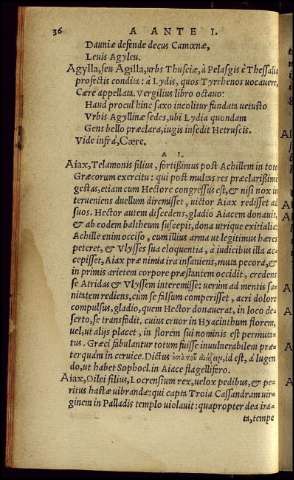 36 A ANTE I.
Dauniæ defende decus Camœnæ,
Leuis Agyleu.
Agylla, seu Agilla, vrbs Thusciæ, à Pelasgis è Thessalia
profectis condita: à Lydis, quos Tyrrhenos vocauere,
Cære appellata. Vergilius libro octauo:
Haud procul hinc saxo incolitur fundata vetusto
Vrbis Agyllinæ sedes, vbi Lydia quondam
Gens bello præclara, iugis insedit Hetruscis.
Vide infrà, Cære.
A I.
Aiax, Telamonis filius, fortißimus post Achillem in toto
Græcorum exercitu: qui post multas res præclarißimè
gestas, etiam cum Hectore congressus est, & nisi nox in-
terueniens duellum diremisset, victor Aiax redisset ad
suos. Hector autem discedens, gladio Aiacem donauit,
& ab eodem baltheum suscepit, dona vtrique exitialia.
Achille enim occiso, cum illius arma vt legitimus hæres
peteret, & Vlysses sua eloquentia, à iudicibus illa ac-
cepisset, Aiax præ nimia ira insaniens, multa pecora, &
in primis arietem corpore præstantem occidit, credens
se Atridas & Vlyssem interemisse: verùm ad mentis sa-
nitatem rediens, cùm se falsum comperisset, acri dolore
compulsus, gladio, quem Hector donauerat, in loco de-
serto, se transfodit, cuius cruor in Hyacinthum florem,
vel, vt alijs placet, in florem sui nominis est permuta-
tus. Græci fabulantur totum fuisse inuulnerabilem præ-
terquàm in ceruice. Dictus id est, à lugen-
do, vt habet Sophocl. in Aiace flagellifero.
Aiax, Oilei filius, Locrensium rex, velox pedibus, & pe-
ritus hastæ vibrandæ: qui capta Troia Cassandram vir-
ginem in Palladis templo violauit: quapropter dea ira-
ta, tempe